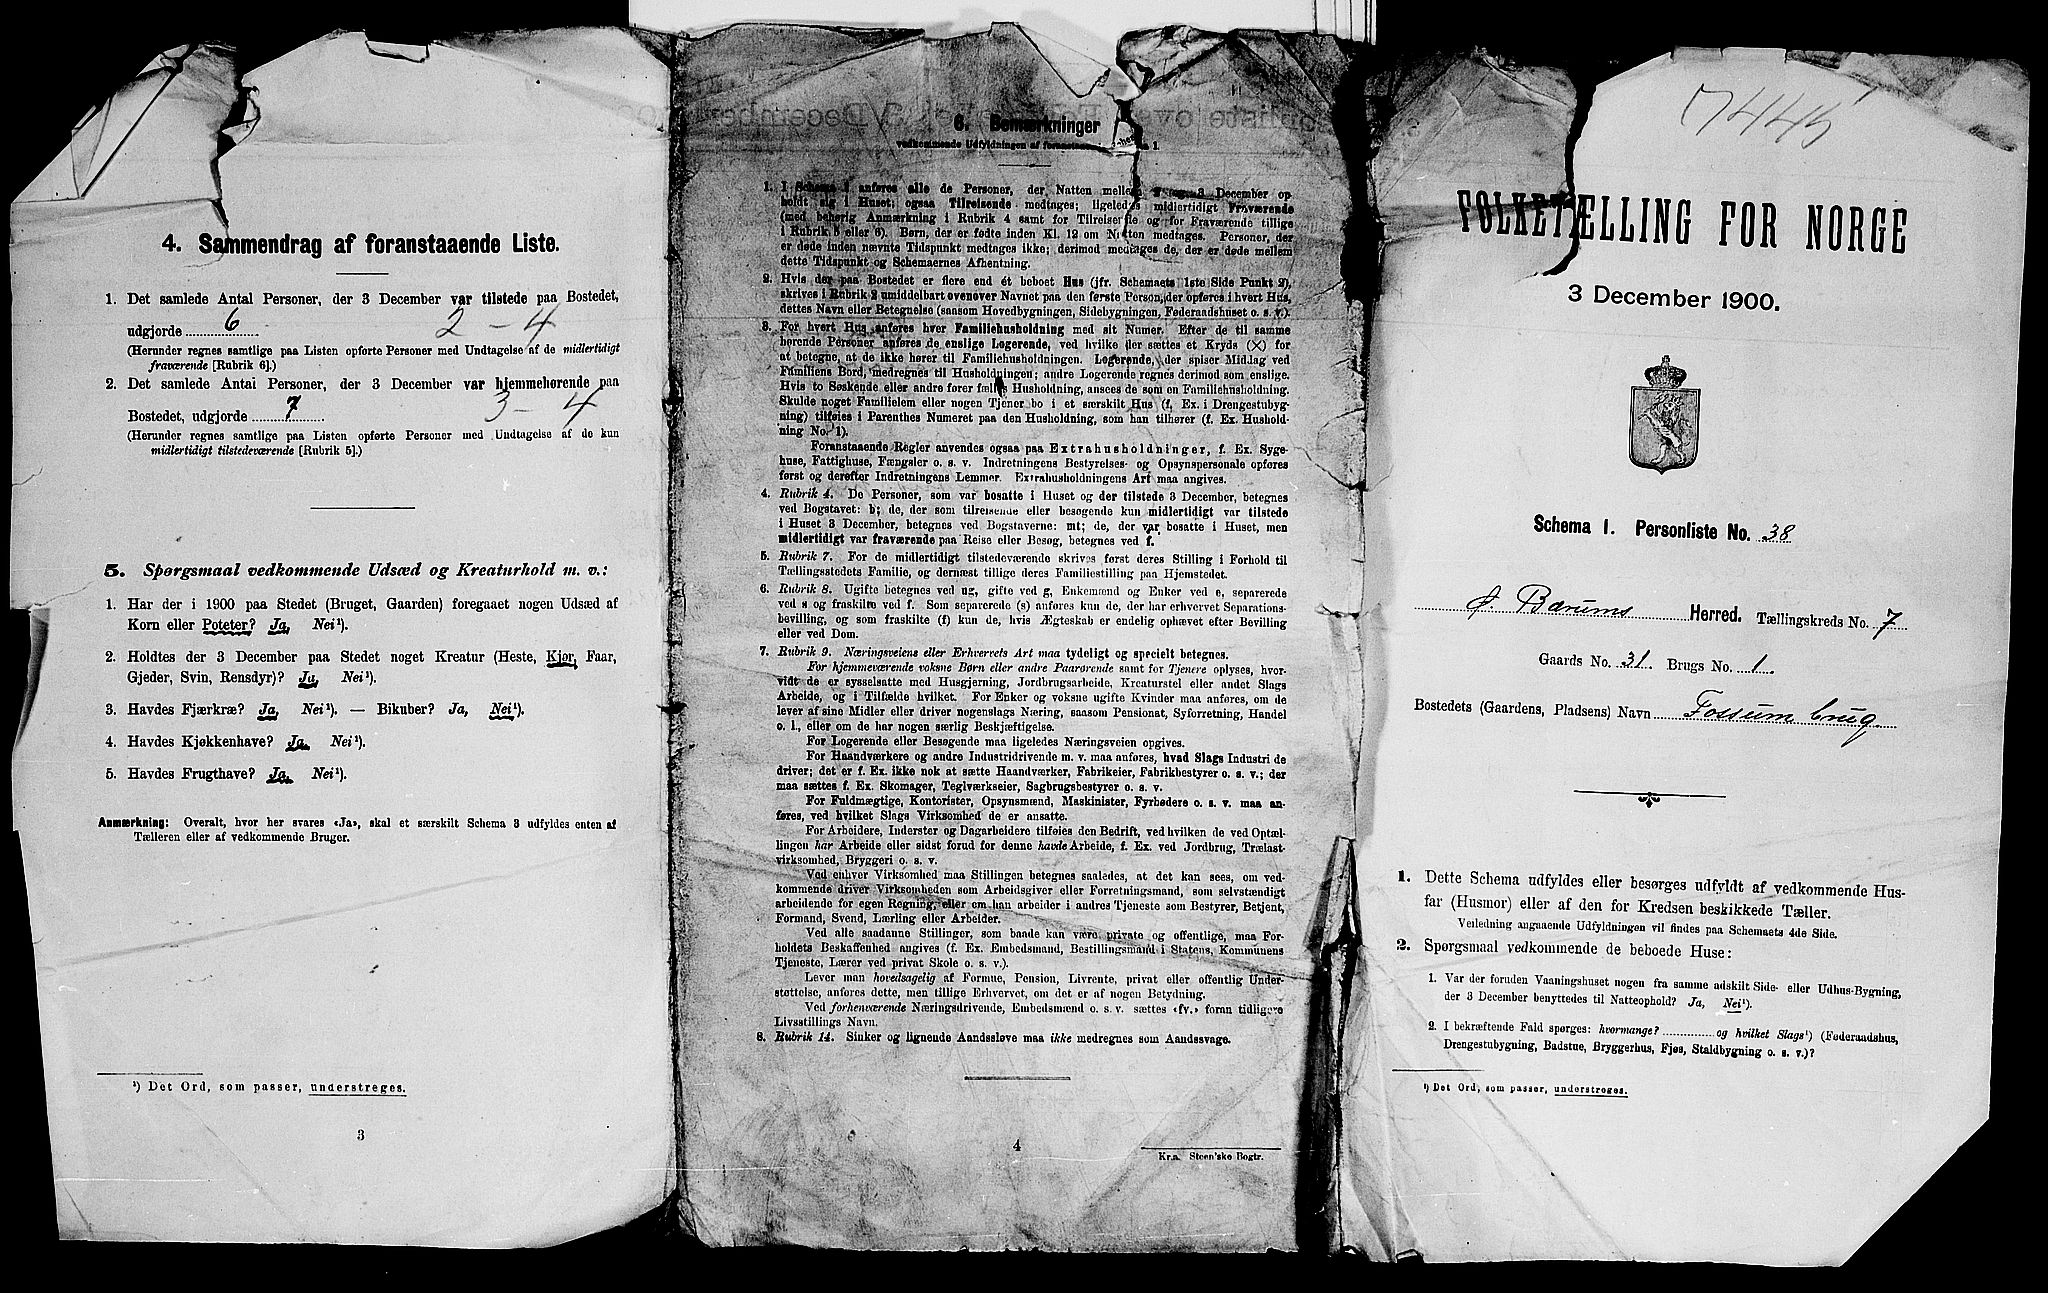 4. Sammendrag af foranstaaende Liste.
1. Det samlede Antal Personer, der 3 December var tilstede paa Bostedet,
udgjorde 6 2 - 4
(Herunder regnes samtlige paa Listen opførte Personer med Undtagelse af de midlertidigt
fraværende [Rubrik 6].)
2. Det samlede Antal Personer, der 3 December var hjemmehørende paa
Bostedet, udgjorde 7 3 - 4
(Herunder regnes samtlige paa Listen opførte Personer med Undtagelse af de kun
midlertidigt tilstedeværende [Rubrik 5].)
5. Spørgsmaal vedkommende Udsæd og Kreaturhold m. v.:
1. Har der i 1900 paa Stedet (Bruget, Gaarden) foregaaet nogen Udsæd af
Korn eller Poteter? Ja, Nei¹).
2. Holdtes der 3 December paa Stedet noget Kreatur (Heste, Kjør, Faar,
Gjeder, Svin, Rensdyr)? Ja, Nei¹).
3. Havdes Fjærkræ? Ja, Nei¹). — Bikuber? Ja, Nei¹).
4. Havdes Kjøkkenhave? Ja, Nei¹).
5. Havdes Frugthave? Ja, Nei¹).
Anmærkning: Overalt, hvor her svares «Ja», skal et særskilt Schema 3 udfyldes enten af
Tælleren eller af vedkommende Bruger.
¹) Det Ord, som passer, understreges.
3
6. Bemærkninger
vedkommende Udfyldningen af foranstaaende 1.
1. I Schema 1 anføres alle de Personer, der Natten mellem 2 og 3 December op-
holdt sig i Huset; ogsaa Tilreisende medtages; ligeledes midlertidigt Fraværende
(med behørig Anmærkning i Rubrik 4 samt for Tilreisende og for Fraværende tillige
i Rubrik 5 eller 6). Børn, der er fødte inden Kl. 12 om Natten medtages. Personer, der
er døde inden nævnte Tidspunkt medtages ikke; derimod medtages de, der er døde mellem
dette Tidspunkt og Schemaernes Afhentning.
2. Hvis der paa Bostedet er flere end ét beboet Hus (jfr. Schemaets 1ste Side Punkt 2),
skrives i Rubrik 2 umiddelbart ovenover Navnet paa den første Person, der opføres i hvert Hus,
dettes Navn eller Betegnelse (saasom Hovedbygningen, Sidebygningen, Føderaadshuset o. s. v.).
3. For hvert Hus anføres hver Familiehusholdning med sit Numer. Efter de til samme
hørende Personer anføres de enslige Logerende, ved hvilke der sættes et Kryds (×) for
at betegne, at de ikke hører til Familiehusholdningen. Logerende, der spiser Middag ved
Familiens Bord, medregnes til Husholdningen; andre Logerende regnes derimod som enslige.
Hvis to Søskende eller andre fører fælles Husholdning, ansees de som en Familiehusholdning.
Skulde noget Familielem eller nogen Tjener bo i et særskilt Hus (f. Ex. i Drengestubyg-
ning) tilføies i Parenthes Numeret paa den Husholdning, som han tilhører (f. Ex. Hushold-
ning No. 1).
Foranstaaende Regler anvendes ogsaa paa Extrahusholdninger, f. Ex. Syge-
huse, Fattighuse, Fængsler o. s. v. Indretningens Bestyrelses- og Opsynspersonale opføres
først og derefter Indretningens Lemmer. Extrahusholdningens Art maa angives.
4. Rubrik 4. De Personer, som var bosatte i Huset og der tilstede 3 December, betegnes
ved Bogstavet: b; de, der som tilreisende eller besøgende kun midlertidigt var tilstede
i Huset 3 December, betegnes ved Bogstaverne: mt; de, der var bosatte i Huset, men
midlertidigt var fraværende paa Reise eller Besøg, betegnes ved f.
5. Rubrik 7. For de midlertidigt tilstedeværende skrives først deres Stilling i Forhold til
Tællingsstedets Familie, og dernæst tillige deres Familiestilling paa Hjemstedet.
6. Rubrik 8. Ugifte betegnes ved ug, gifte ved g, Enkemænd og Enker ved e, separerede
ved s og fraskilte ved f. Som separerede (s) anføres kun de, der har erhvervet Separations-
bevilling, og som fraskilte (f) kun de, hvis Ægteskab er endelig ophævet efter Bevilling
eller ved Dom.
7. Rubrik 9. Næringsveiens eller Erhvervets Art maa tydeligt og specielt betegnes.
For hjemmeværende voksne Børn eller andre Paarørende samt for Tjenere oplyses, hvor-
vidt de er sysselsatte med Husgjerning, Jordbrugsarbeide, Kreaturstel eller andet Slags
Arbeide, og i Tilfælde hvilket. For Enker og voksne ugifte Kvinder maa anføres, om de
lever af sine Midler eller driver nogenslags Næring, saasom Pensionat, Syforretning, Handel
o. l., eller om de har nogen særlig Beskjæftigelse.
For Logerende eller Besøgende maa ligeledes Næringsveien opgives.
For Haandværkere og andre Industridrivende m. v. maa anføres, hvad Slags Industri de
driver; det er f. Ex. ikke nok at sætte Haandværker, Fabrikeier, Fabrikbestyrer o. s. v.; der
maa sættes f. Ex. Skomager, Teglværkseier, Sagbrugsbestyrer o. s. v.
For Fuldmægtige, Kontorister, Opsynsmænd, Maskinister, Fyrbødere o. s. v. maa an-
føres, ved hvilket Slags Virksomhed de er ansatte.
For Arbeidere, Inderster og Dagarbeidere tilføies den Bedrift, ved hvilken de ved Optæl-
lingen har Arbeide eller sidst forud for denne havde Arbeide, f. Ex. ved Jordbrug, Trælast-
virksomhed, Bryggeri o. s. v.
Ved enhver Virksomhed maa Stillingen betegnes saaledes, at det kan sees, om ved-
kommende driver Virksomheden som Arbeidsgiver eller Forretningsmand, som selvstændigt
arbeidende for egen Regning, eller om han arbeider i andres Tjeneste som Bestyrer, Betjent,
Formand, Svend, Lærling eller Arbeider.
Ved alle saadanne Stillinger, som baade kan være private og offentlige, maa For-
holdets Beskaffenhed angives (f. Ex. Embedsmand, Bestillingsmand i Statens, Kommunens
Tjeneste, Lærer ved privat Skole o. s. v.).
Lever man hovedsagelig af Formue, Pension, Livrente, privat eller offentlig Under-
støttelse, anføres dette, men tillige Erhvervet, om det er af nogen Betydning.
Ved forhenværende Næringsdrivende, Embedsmænd o. s. v. sættes «fv.» foran tidligere
Livsstillings Navn.
8. Rubrik 14. Sinker og lignende Aandssløve maa ikke medregnes som Aandssvage.
4
Kr.a. Steen'ske Bogtr.
7445
FOLKETÆLLING FOR NORGE
3 December 1900.
Schema 1. Personliste No. 38
Ø. Bærums Herred. Tællingskreds No. 7
Gaards No. 31. Brugs No. 1.
Bostedets (Gaardens, Pladsens) Navn Fossum brug
1. Dette Schema udfyldes eller besørges udfyldt af vedkommende Hus-
far (Husmor) eller af den for Kredsen beskikkede Tæller.
Veiledning angaaende Udfyldningen vil findes paa Schemaets 4de Side.
2. Spørgsmaal vedkommende de beboede Huse:
1. Var der foruden Vaaningshuset nogen fra samme adskilt Side- eller Udhus-Bygning,
der 3 December benyttedes til Natteophold? Ja, Nei¹).
2. I bekræftende Fald spørges: hvormange? og hvilket Slags¹) (Føderaadshus,
Drengestubygning, Badstue, Bryggerhus, Fjøs, Staldbygning o. s. v.)?
¹) Det Ord, som passer, understreges.